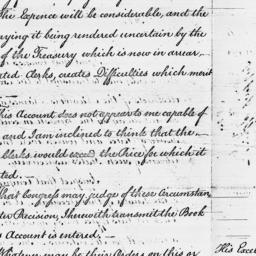 The Expence will be considerable, and the
rying it being rendered uncertain by the
of the Treasury which is now in arrear
ated Clerks, creates Difficulties which merit
his Account does not appear to me capable of
and I am inclined to think that the
blanks would exceed the Price for which it
ted.
that Congress may judge of these Circumstan
Decision, I herewith transmit the Book
Account is entered,
Whatever may be their Orders on this or
His Excel